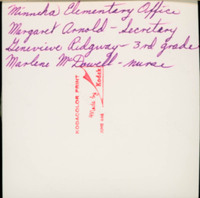 Minneha Elementary Office
Margaret Arnold - Secretary
Genevieve Ridgway - 3rd grade
Marlene McDowell - nurse
KODACOLOR PRINT
Made by Kodak